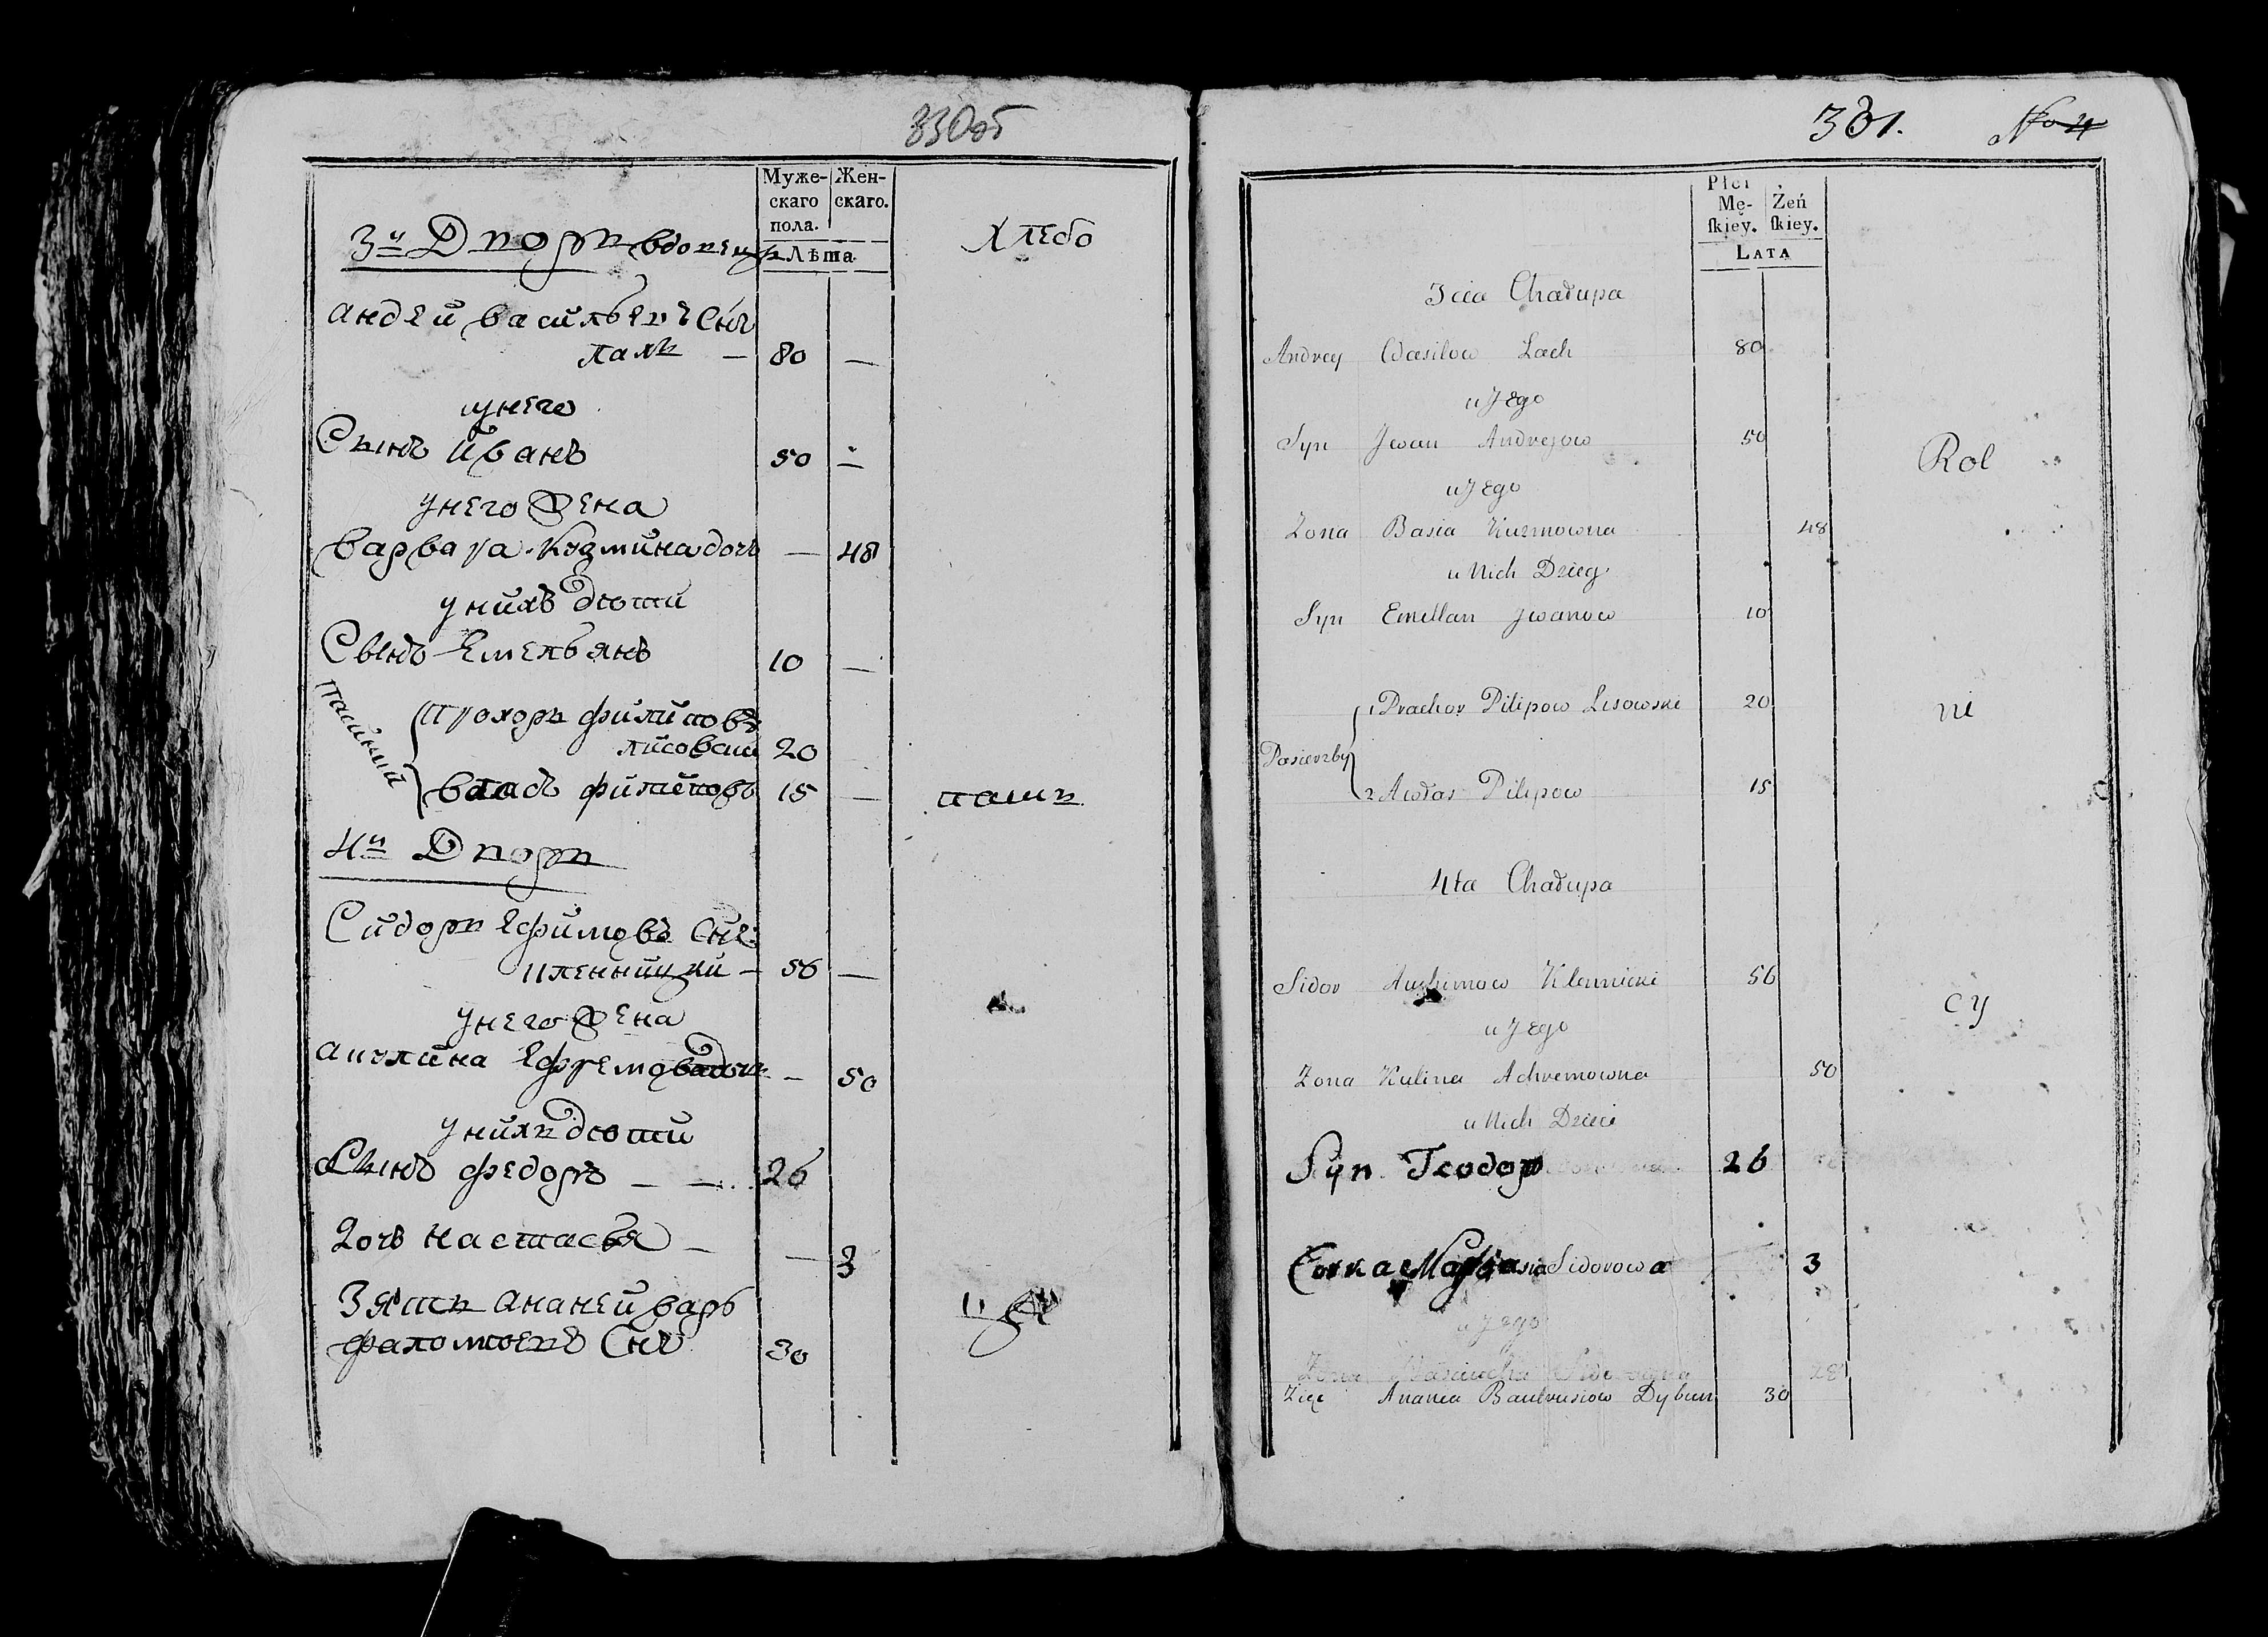 330об
Муже- Жен-
скаго скаго.
пола.
Лѣта
3й Дворъ вдовецъ
хлебо
андей васильевъ Снъ
лахъ — 80 —
унего
Сынъ иванъ 50 —
унего жена
варвара кузмина дочь — 48
унихъ дети
Сынъ Емельянъ 10 —
прохоръ филиповъ
лисовски 20
власъ филиповъ 15 —
паш
4й Дворъ
Сидоръ Ефимовъ Снъ
кленницки — 56 —
унего жена
акулина Ефремова дочь — 50
унихъ дети
Сынъ федоръ — — 26
Дочь настасья — — 3
Зять ананей варъ
фаломеевъ Снъ 30
цы
331. No 4
Płci
Mę- Żeń
ſkiey. ſkiey.
LATA
3cia Chałupa
Andrey Wasilow Lach 80
u Jego
Syn Jwan Andrejow 50
Rol
u Jego
Żona Basia Kuzmowna 48
u Nich Dzieci
Syn Emillan Jwanow 10
1 Prachor Pilipow Lisowski 20
ni
Pasierzby
2 Awłas Pilipow 15
4ta Chałupa
Sidor Auchimow Klennicki 56
cy
u Jego
Żona Kulina Achremowna 50
u Nich Dzieci
Syn Teodor 26
Corka Sidorowa 3
u Jego
Żona 28
Zięć Anania Bautrusiow Dybun 30